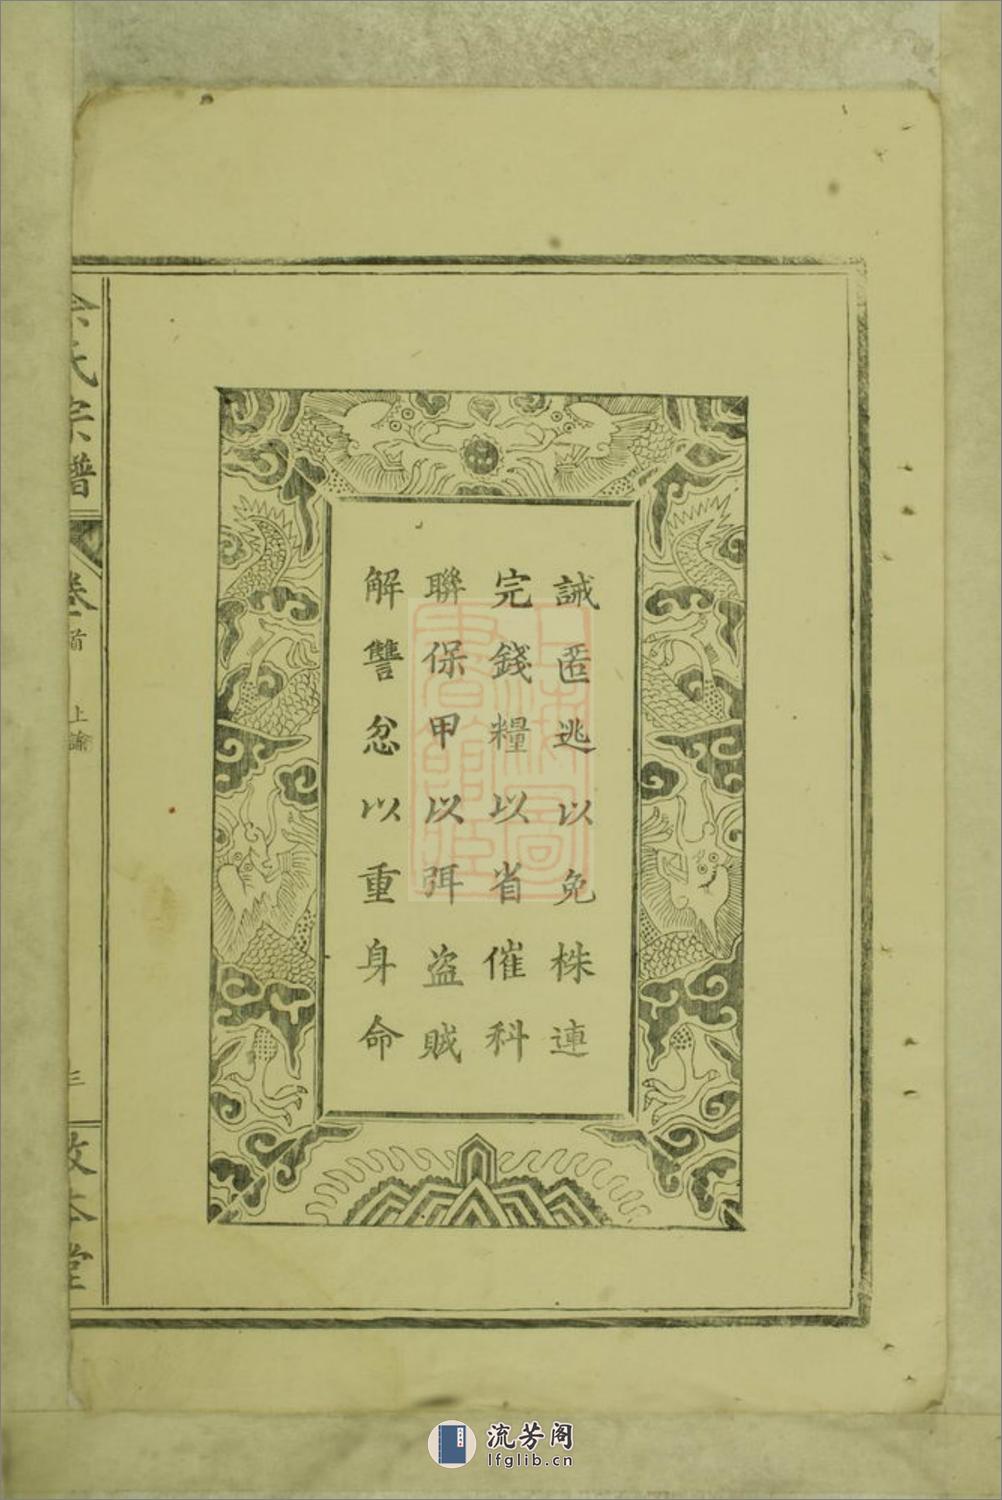 誡匿逃以免株連
完錢糧以省催科
聯保甲以弭盜賊
解讐忿以重身命
氏宗譜
卷首
上諭
三
敦本堂
流芳阁
lfglib.cn